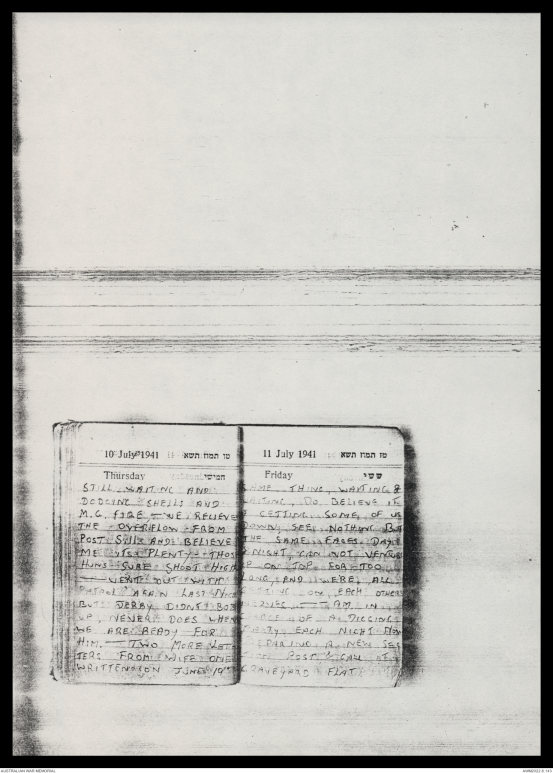 10 July 1941 טו תמוז תשא
Thursday חמישי
STILL WAITING AND
DODGING SHELLS AND
M.G. FIRE — WE RELIEVE
THE OVERFLOW FROM
POST AND BELIEVE
ME ITS PLENTY THOSE
HUNS SURE SHOOT HIGH
— WENT OUT WITH
PATROL AGAIN LAST NIGHT
BUT DERBY DIDNT BOB
UP, NEVER DOES WHEN
WE ARE READY FOR
HIM. — TWO MORE LET-
TERS FROM WIFE ONE
WRITTEN ON JUNE 19TH
11 July 1941 טז תמוז תשא
Friday ששי
SAME THING, WAITING &
WAITING, DO BELIEVE IT
GETTING SOME OF US
DOWN, SEE NOTHING BUT
THE SAME FACES DAY &
NIGHT, CAN NOT VENTURE
UP ON TOP FOR TOO
LONG AND WERE ALL
GETTING ON EACH OTHERS
NERVES — AM IN
CHARGE OF A DIGGING
PARTY EACH NIGHT NOW
PREPARING A NEW SEC
TION POST CALL IT
GRAVEYARD FLAT
AUSTRALIAN WAR MEMORIAL